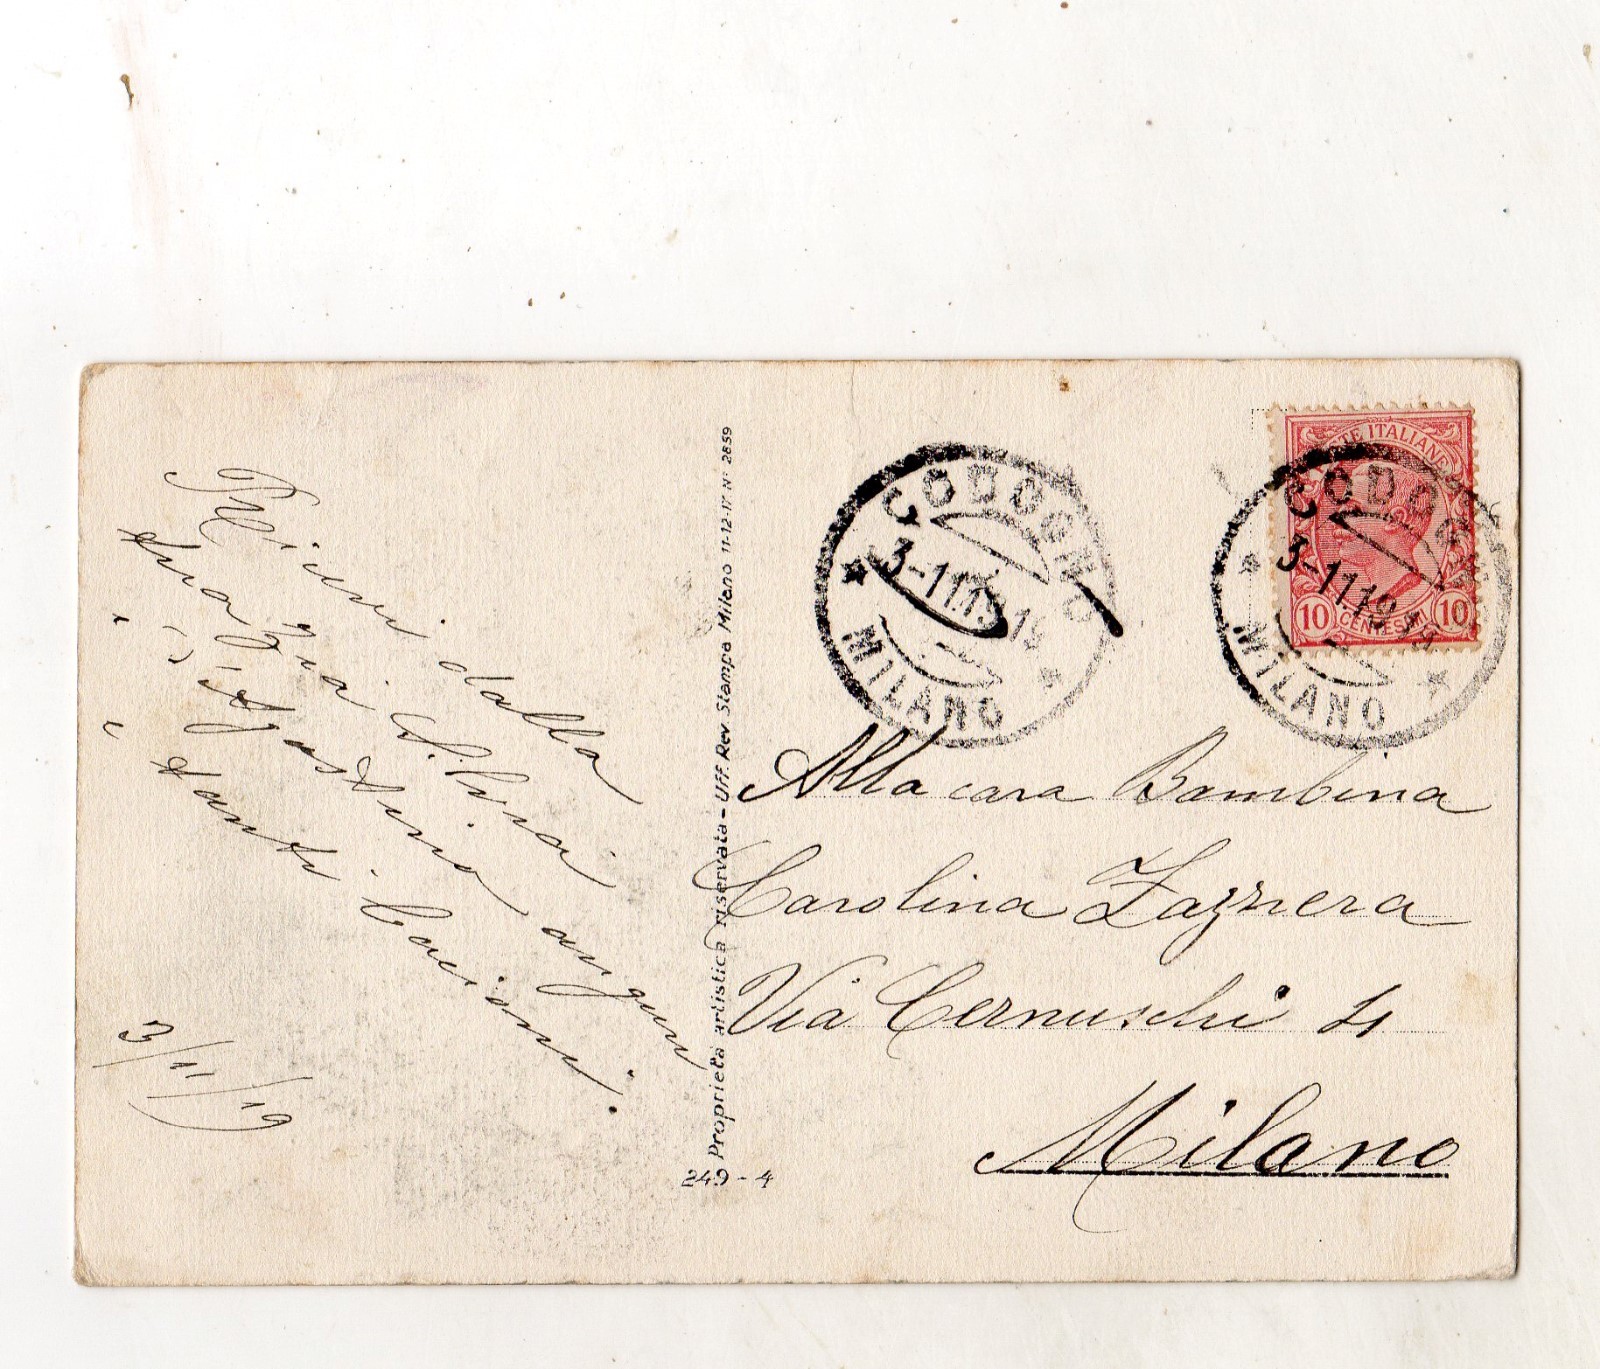 Ricevi dalla
tua zia Silvia
e S. Agostino auguri
e tanti bacioni.
3/11/19
Proprietà artistica riservata - Uff. Rev. Stampa Milano 11-12-17 N° 2859
249-4
CODOGNO
3-11.19 19
MILANO
POSTE ITALIANE
10 CENTESIMI 10
CODOGNO
3-11.19
MILANO
Alla cara Bambina
Carolina Zaznera
Via Cernuschi 4
Milano